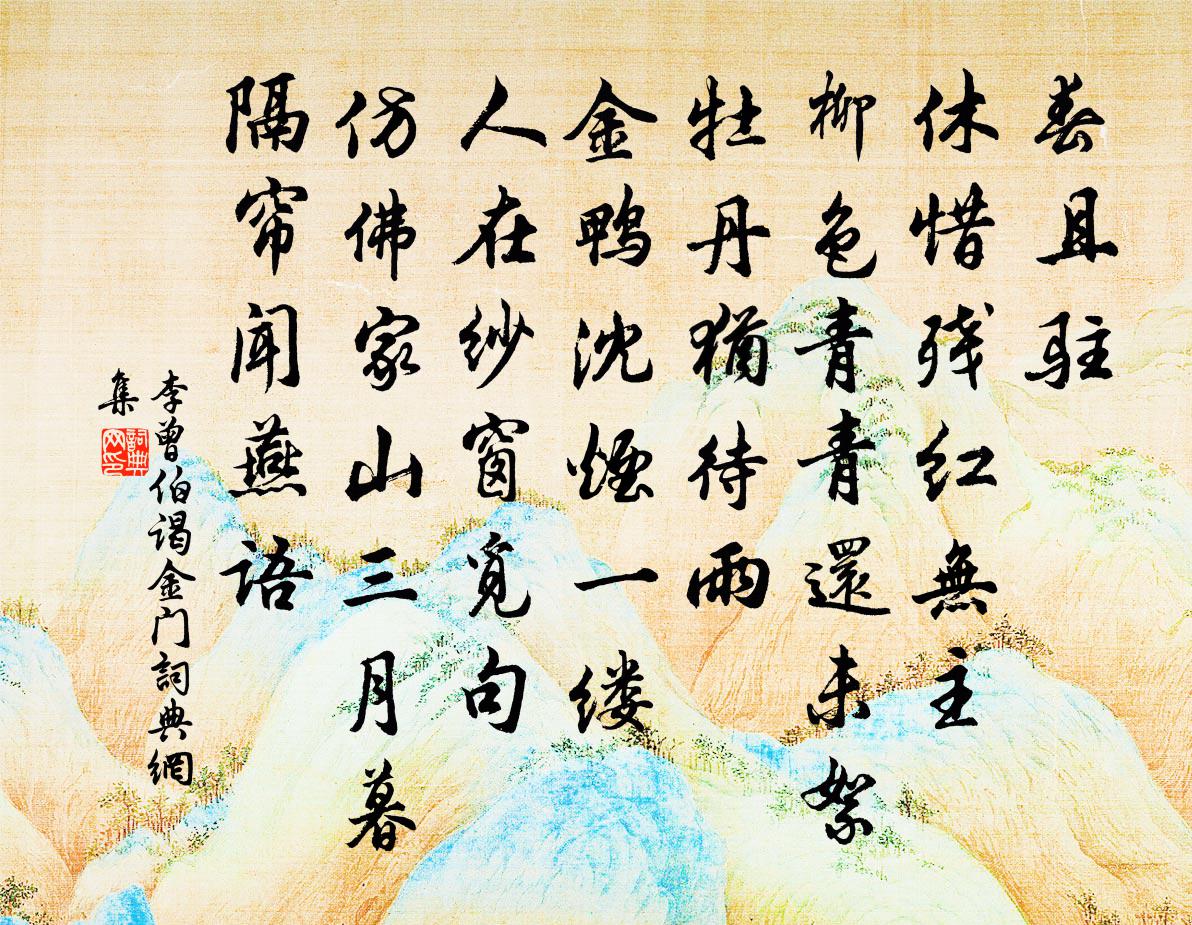 春且駐
休惜残红無主
柳色青青還未絮
牡丹猶待雨
金鴨沈煙一缕
人在纱窗觅句
仿佛家山三月暮
隔帘闻燕语
李曾伯谒金门詞典網
集
詞典
网印